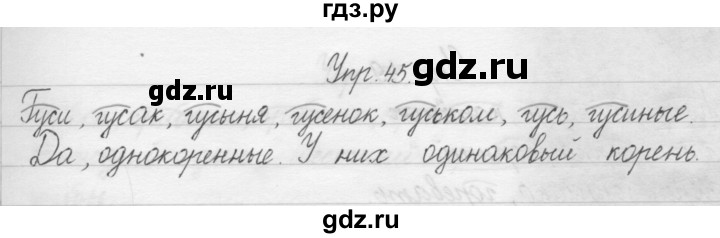 гдз.ру
Упр. 45.
gdz.ru
gdz.ru
Гуси, гусак, гусыня, гусенок, гуськом, гусь, гусиные.
Да, однокоренные. У них одинаковый корень.
gdz.ru
gdz.ru